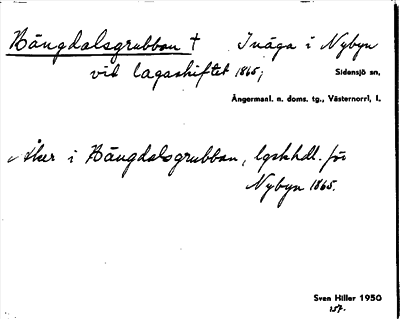 Bängdalsgrubban † Inäga i Nybyn
vid lagaskiftet 1865;
Sidensjö sn,
Ångermanl. n. doms. tg., Västernorrl, l.
Åker i Bängdalsgrubban, lgskhdl. för
Nybyn 1865.
Sven Hiller 1950
157.